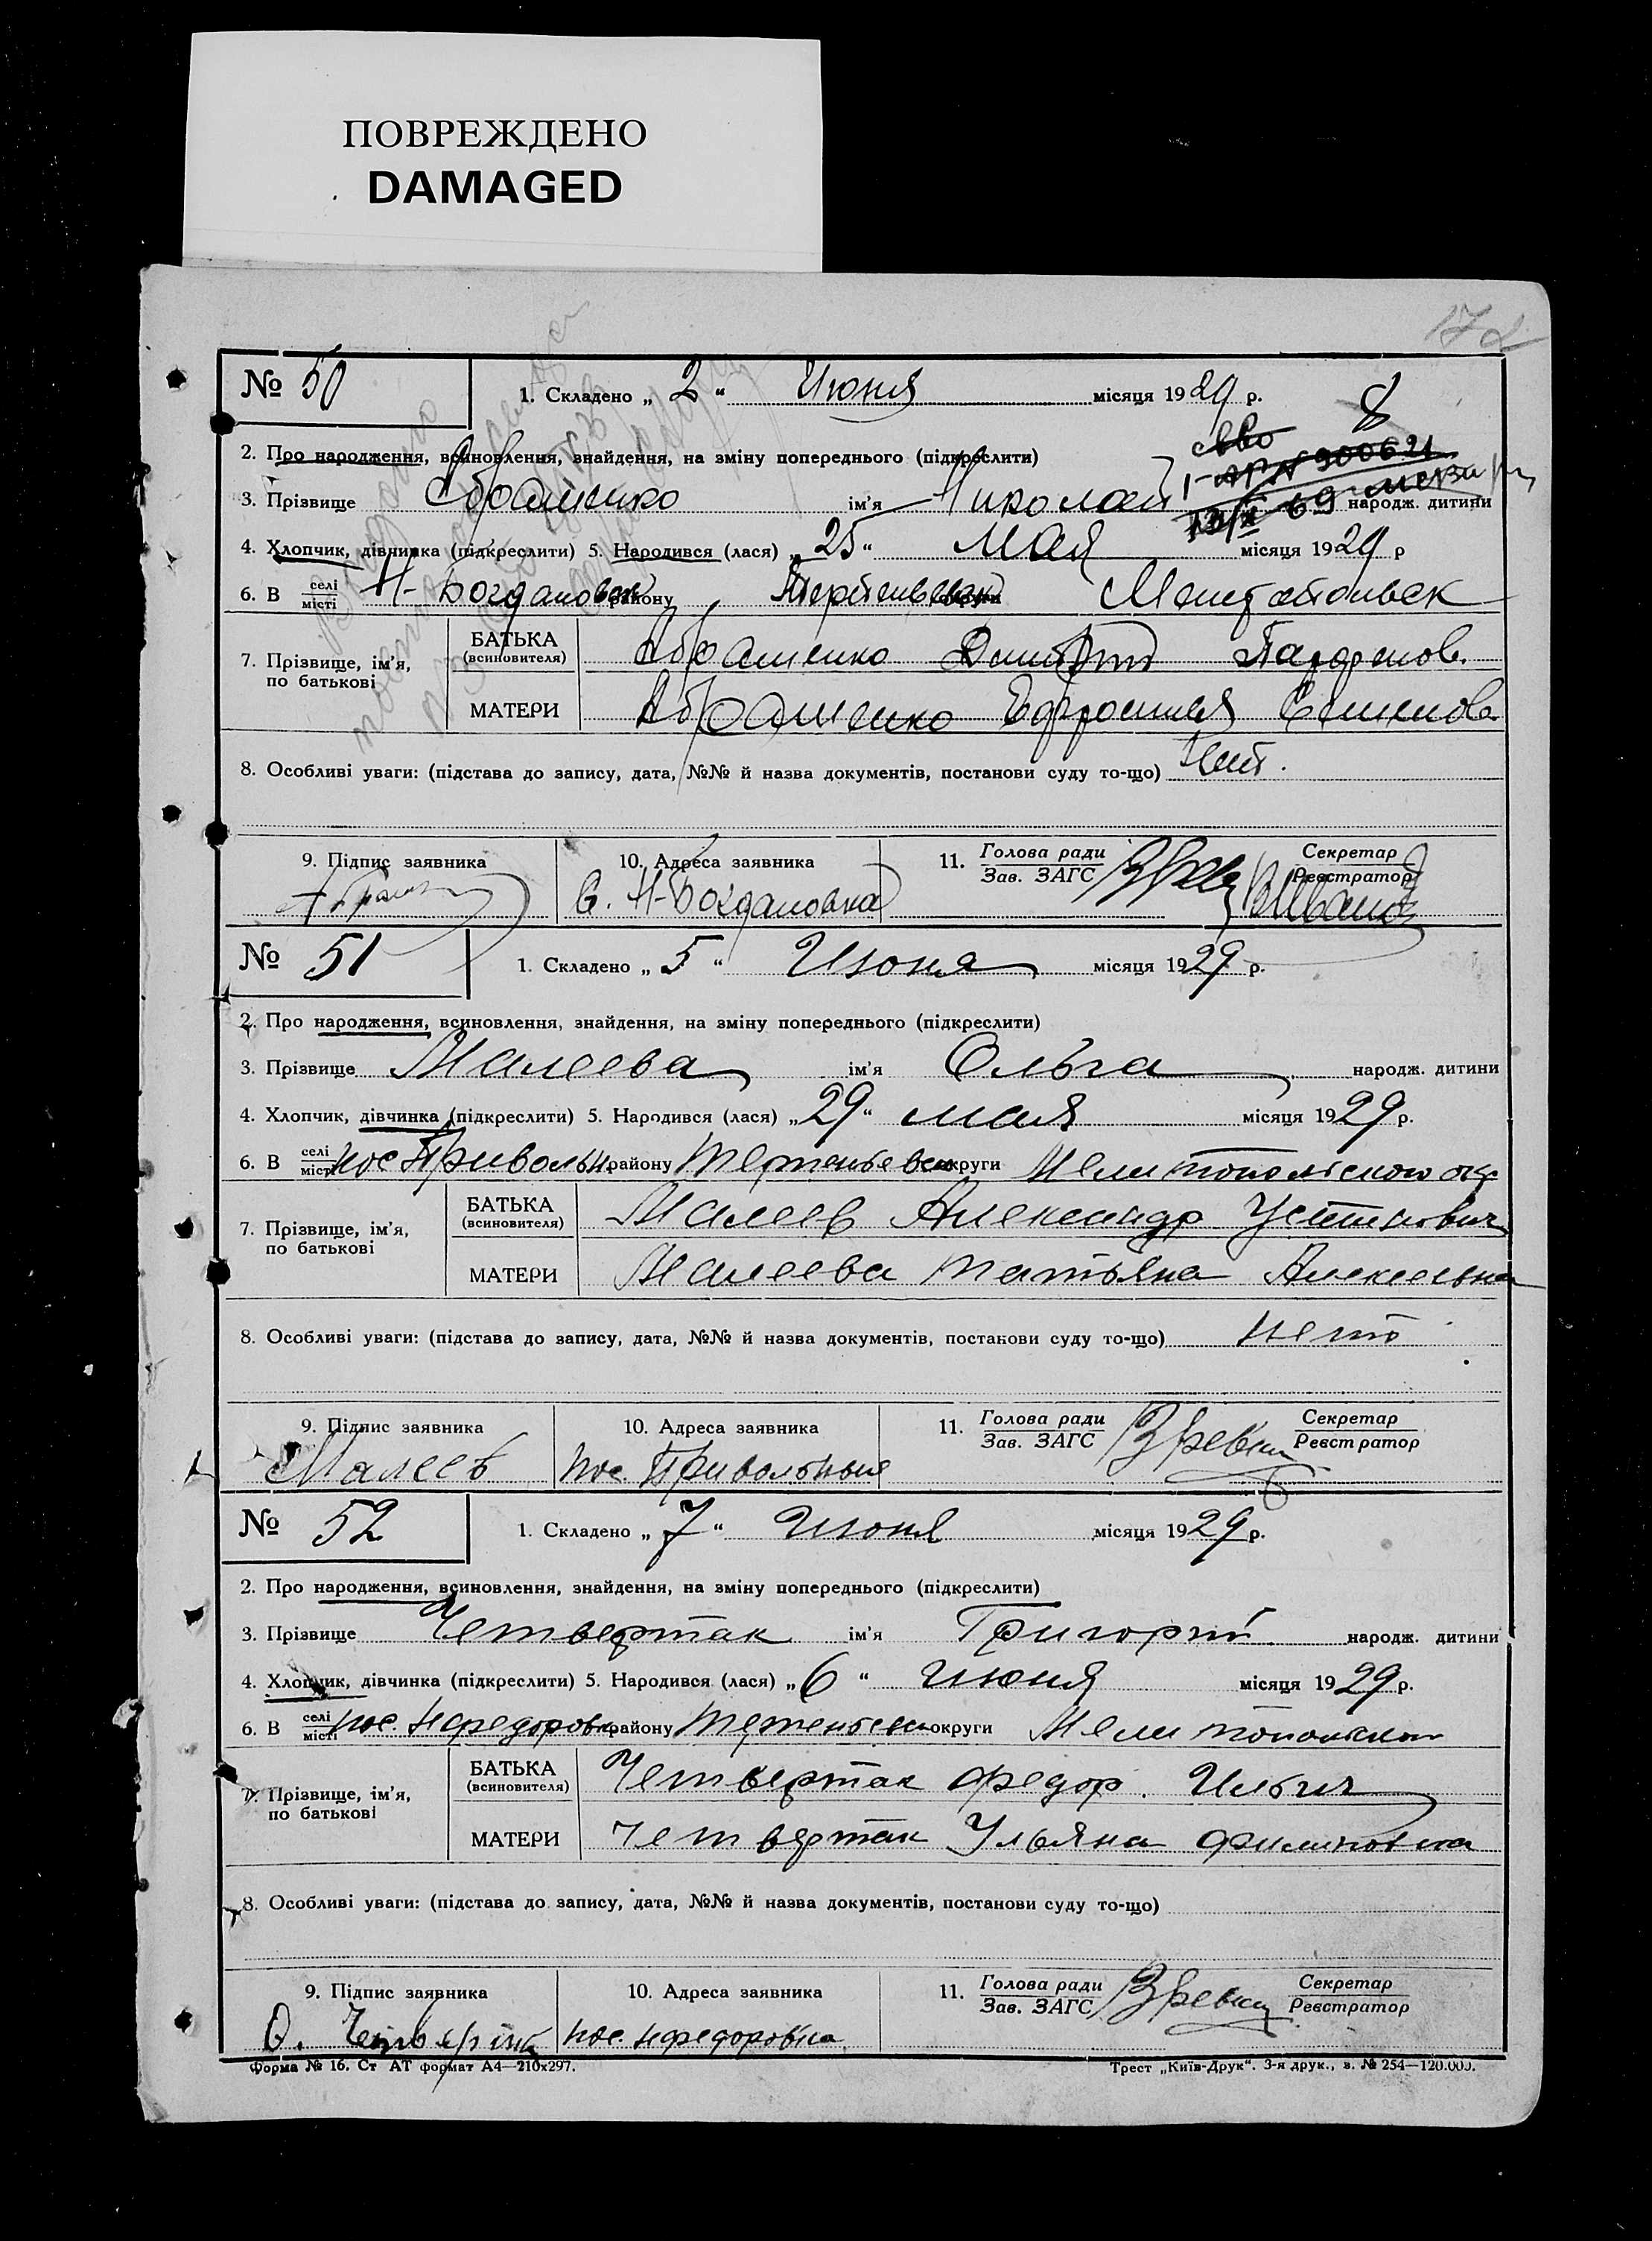 ПОВРЕЖДЕНО
DAMAGED
172
№ 50
1. Складено „ 2 “ Июня місяця 1929 р.
8
2. Про народження, всиновлення, знайдення, на зміну попереднього (підкреслити)
I-АР № 900621
3. Прізвище Абраменко ім'я Николай народж. дитини
4. Хлопчик, дівчинка (підкреслити) 5. Народився (лася) „ 25 “ Мая місяця 1929 р
6. В селі місті Н-Богдановк району округи Мелитопольск
7. Прізвище, ім'я, по батькові
БАТЬКА (всиновителя) Абраменко Дмитрий Парфенов.
МАТЕРИ Абраменко Ефросинья Семенова
8. Особливі уваги: (підстава до запису, дата, №№ й назва документів, постанови суду то-що) Нет.
9. Підпис заявника
10. Адреса заявника С. Н-Богдановка
11. Голова ради Зав. ЗАГС
Секретар Реєстратор
№ 51
1. Складено „ 5 “ Июня місяця 1929 р.
2. Про народження, всиновлення, знайдення, на зміну попереднього (підкреслити)
3. Прізвище Малеева ім'я Ольга народж. дитини
4. Хлопчик, дівчинка (підкреслити) 5. Народився (лася) „ 29 “ мая місяця 1929 р.
6. В селі місті пос Привольн району Терпеньевск округи Мелитопольского окр
7. Прізвище, ім'я, по батькові
БАТЬКА (всиновителя) Малеев Александр Устинович
МАТЕРИ Малеева Татьяна Алексеевна
8. Особливі уваги: (підстава до запису, дата, №№ й назва документів, постанови суду то-що) нет
9. Підпис заявника Малеев
10. Адреса заявника пос. Привольный
11. Голова ради Зав. ЗАГС
Секретар Реєстратор
№ 52
1. Складено „ 7 “ Июня місяця 1929 р.
2. Про народження, всиновлення, знайдення, на зміну попереднього (підкреслити)
3. Прізвище Четвертак ім'я Григорий народж. дитини
4. Хлопчик, дівчинка (підкреслити) 5. Народився (лася) „ 6 “ Июня місяця 1929 р.
6. В селі місті пос. Нфедоровка району округи Мелитопольск
7. Прізвище, ім'я, по батькові
БАТЬКА (всиновителя) Четвертак Федор Ильич
МАТЕРИ Четвертак Ульяна Филиповна
8. Особливі уваги: (підстава до запису, дата, №№ й назва документів, постанови суду то-що)
9. Підпис заявника
10. Адреса заявника пос. Нфедоровка
11. Голова ради Зав. ЗАГС
Секретар Реєстратор
Форма № 16. Ст АТ формат А4—210х297.
Трест „Київ-Друк“. 3-я друк., з. № 254—120.000.